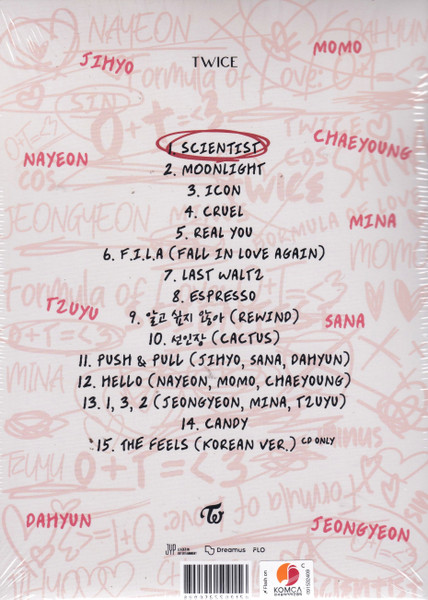 NAYEON
MOMO
DAHYUN
JIHYO
TWICE
Formula of Love: O+T=<3
SIN
O+T=<3
1. SCIENTIST
CHAEYOUNG
2. MOONLIGHT
NAYEON
COS
3. ICON
4. CRUEL
JEONGYEON
MINA
5. REAL YOU
6. F.I.L.A (FALL IN LOVE AGAIN)
MOMO
7. LAST WALTZ
8. ESPRESSO
TZUYU
SANA
9. 알고 싶지 않아 (REWIND)
10. 선인장 (CACTUS)
11. PUSH & PULL (JIHYO, SANA, DAHYUN)
MINA
12. HELLO (NAYEON, MOMO, CHAEYOUNG)
13. 1, 3, 2 (JEONGYEON, MINA, TZUYU)
14. CANDY
15. THE FEELS (KOREAN VER.) CD ONLY
TZUYU
O+T=<3
DAHYUN
JEONGYEON
JYP
Dreamus
FLO
KOMCA